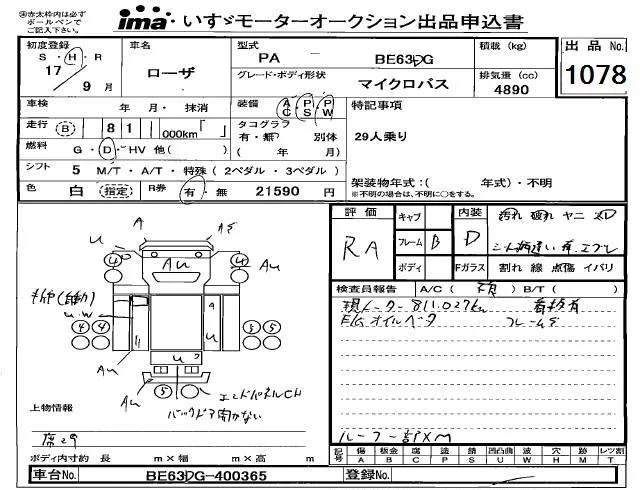 ※赤太枠内は必ず
ボールペンで
ご記入下さい。
ima・いすゞモーターオークション出品申込書
初度登録 S・H・R 17年 9月
車名 ローザ
型式 PA － BE63DG
グレード・ボディ形状 マイクロバス
積載 (kg)
排気量 (cc) 4890
出品 No. 1078
車検 年 月・抹消
装備 AC PS PW
特記事項
29人乗り
走行 (B) 81 000km「 」
タコグラフ 有・無 別体 ( 年 月)
燃料 G・D・HV 他( )
シフト 5 M/T・A/T・特殊(2ペダル・3ペダル)
架装物年式:( 年式)・不明
※不明の場合は、不明に○をする。
色 白 (指定) R券 有・無 21590 円
評価 RA
キャブ
フレーム B
ボディ
内装 D
Fガラス 割れ 線 点傷 イバリ
汚れ 破れ ヤニ
検査員報告 A/C ( ) B/T ( )
現メーター811,027km 看板有
E/Gオイルベタ フレームS
ルーフ一部XM
A
u
AS
Au
Au
④
④
u.w
A
④④
⑤⑤
u
Au
Au
⑤
エンドパネルCH
バックドア開かない
上物情報
ボディ内寸約 長 m×幅 m×高 m
記号 傷 A 板金 B 腐 C 造 P 錆 S 凹凸曲 U 波 W 穴 H 跡 M レツ割 T
車台No. BE63DG-400365
登録No.